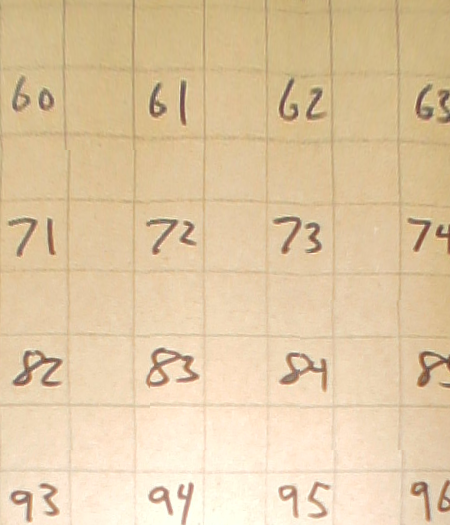 60 61 62 63
71 72 73 74
82 83 84 85
93 94 95 96